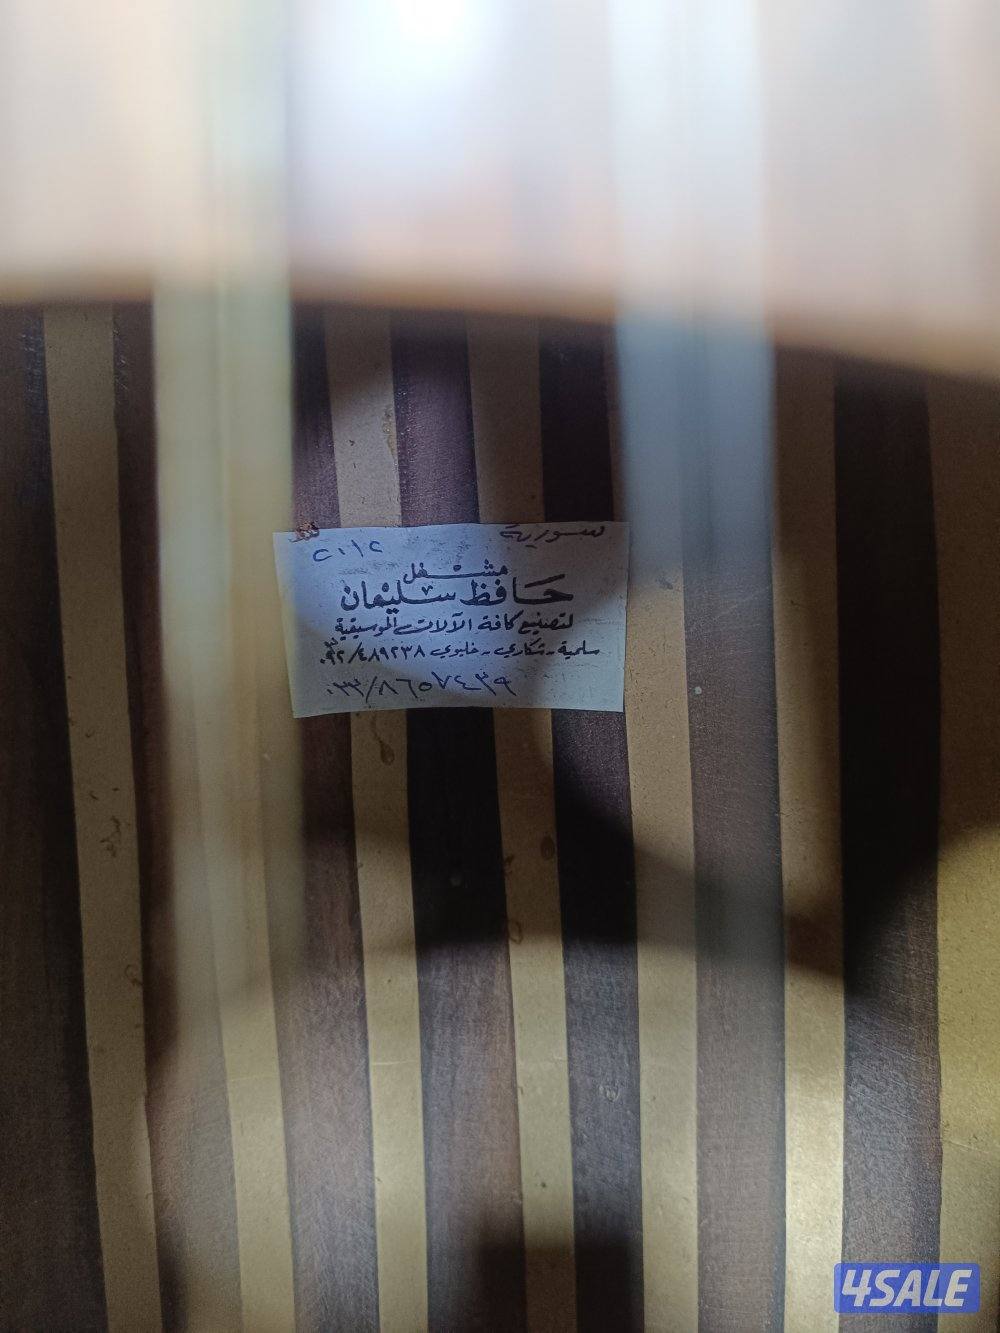 سورية
٢٠١٢
مشغل
حافظ سليمان
لتصنيع كافة الآلات الموسيقية
سلمية - شكاري - خليوي ٠٩٢/٤٨٩٢٣٨
٠٣٣/٨٦٥٧٤٣٩
4SALE